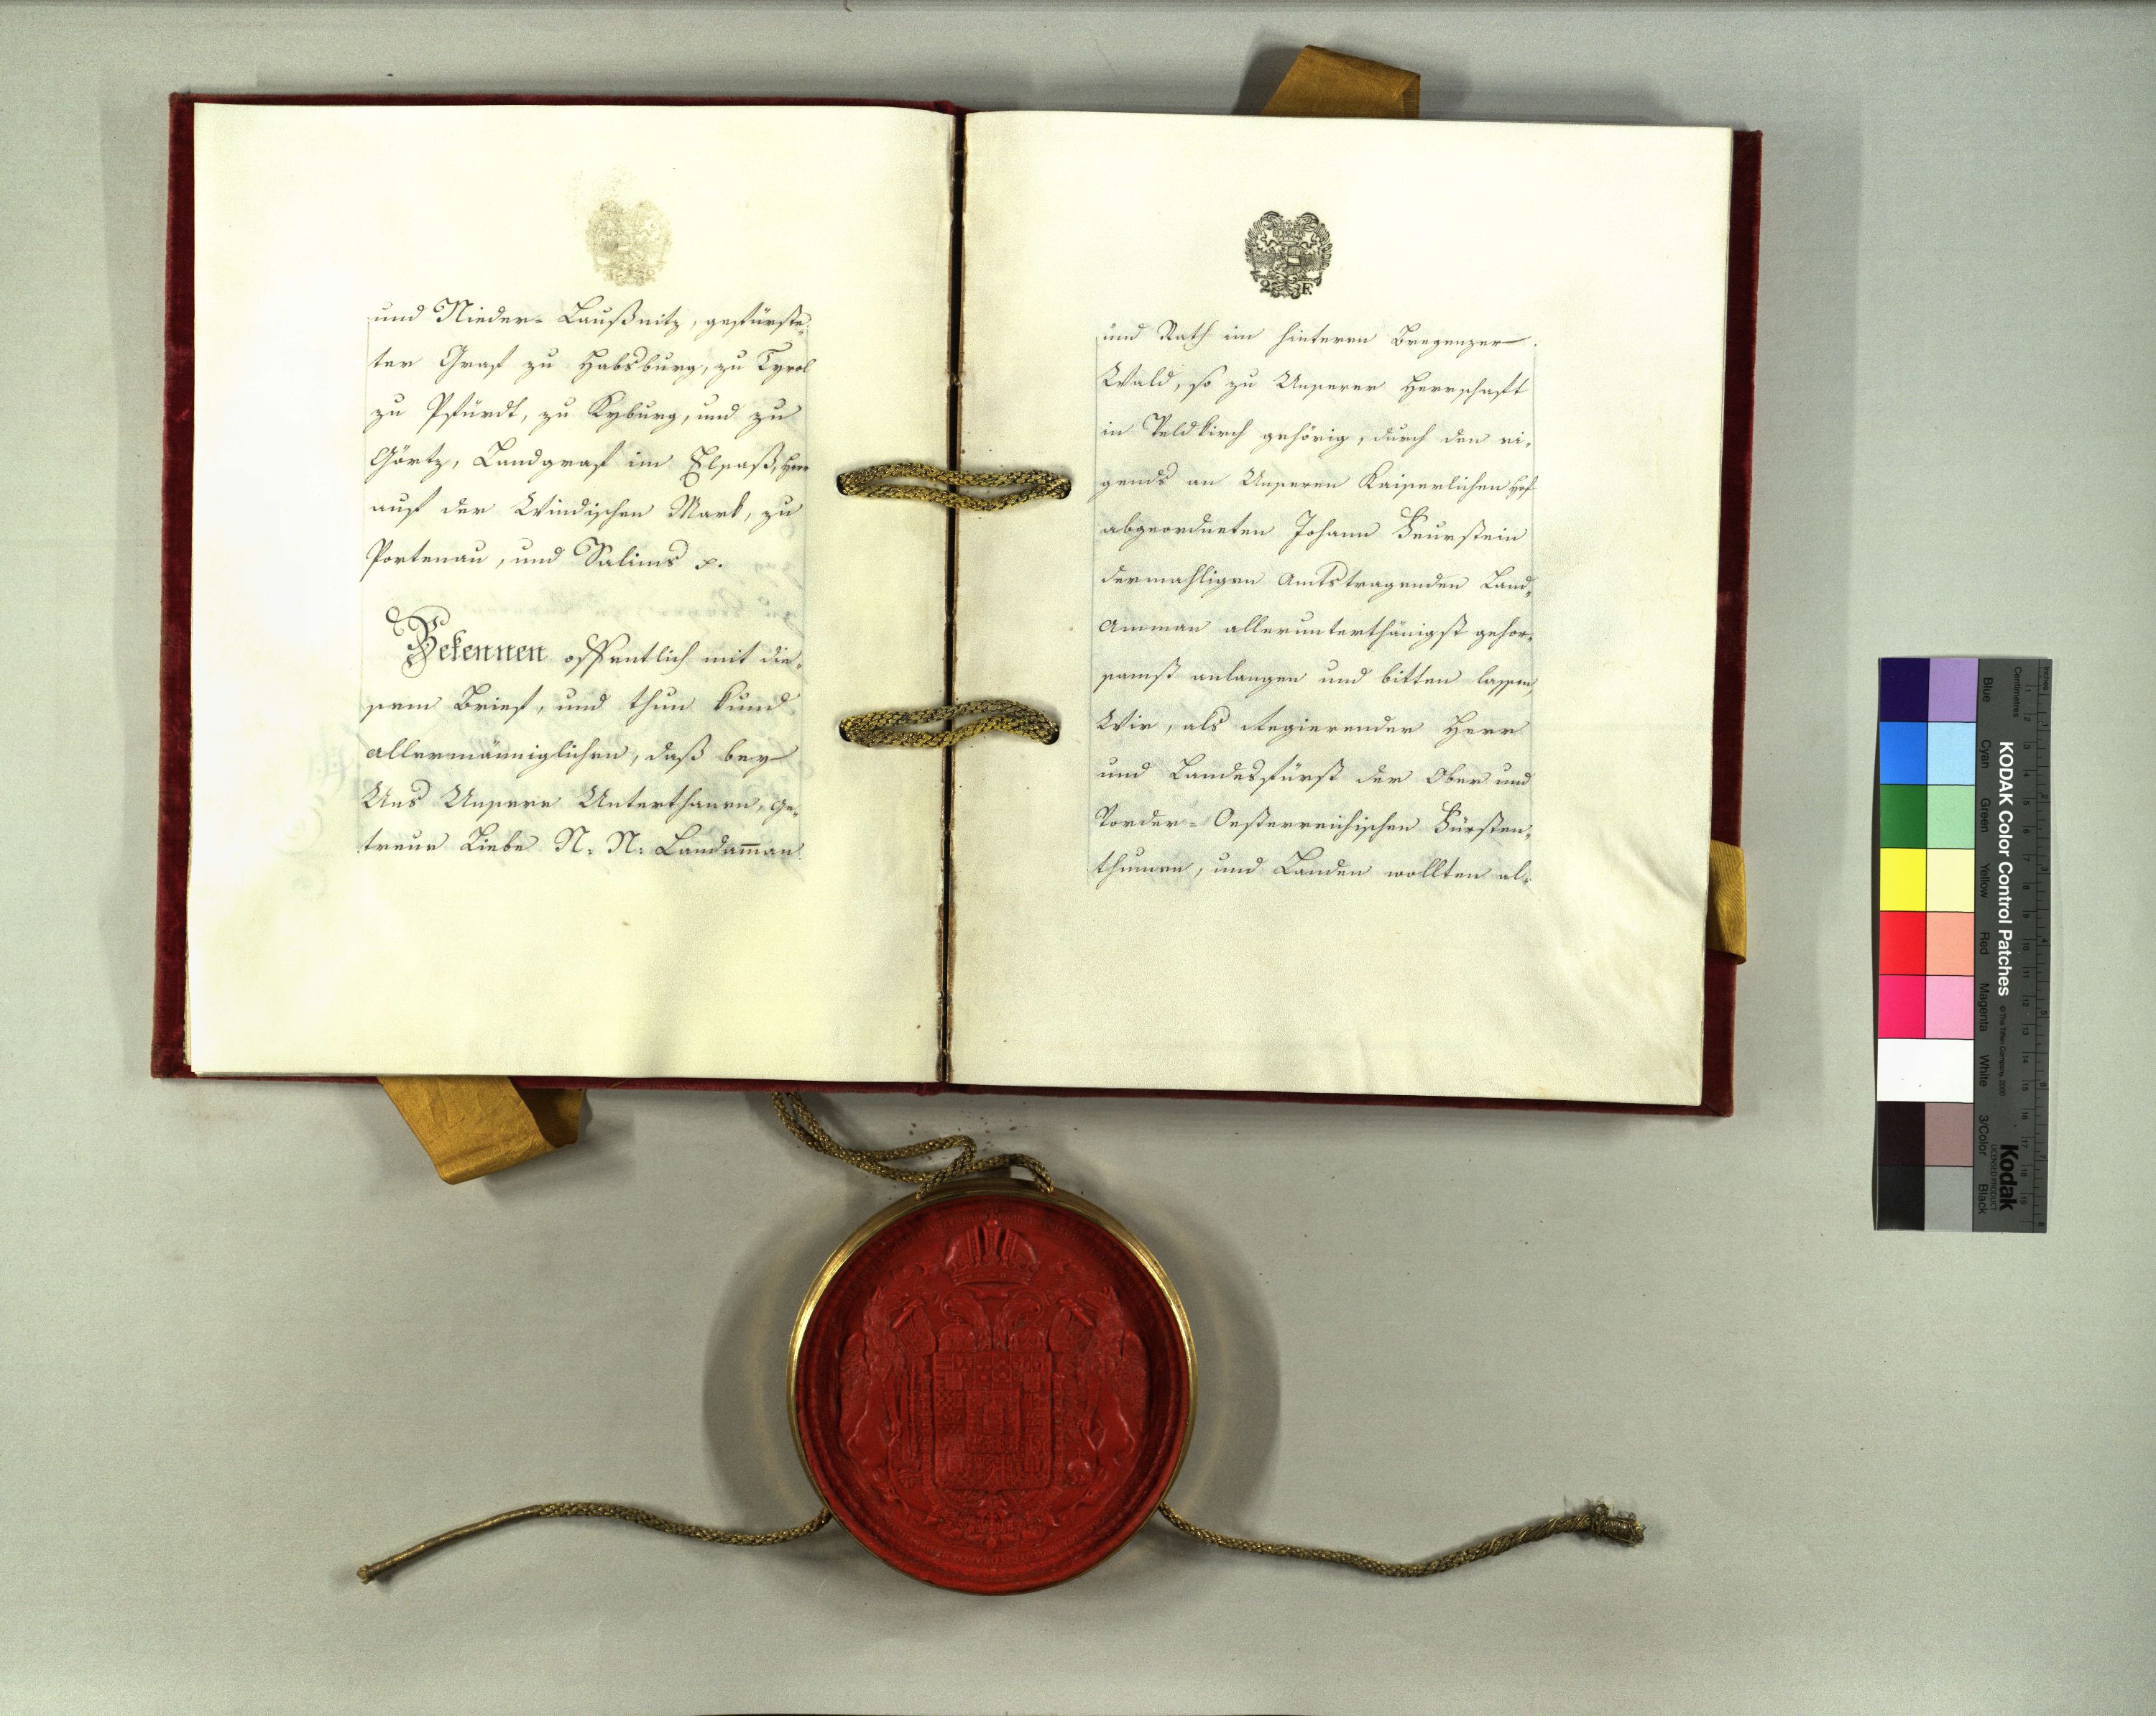 und Nieder-Laußnitz, gefürste-
ter Graf zu Habsburg, zu Tyrol
zu Pfürdt, zu Kyburg, und zu
Görtz, Landgraf im Elsaß, Herr
auf der Windischen Mark, zu
Portenau, und Salins
Bekennen offentlich mit die-
sem Brief, und thun kund
allermänniglichen, daß bey
Uns Unsere Unterthanen, ge-
treue Liebe N: N: Landam̄an
2 F.
und Rath im hinteren Bregenzer
Wald, so zu Unserer Herrschaft
in Veldkirch gehörig, durch den ei-
gends an Unseren Kaiserlichen Hof
abgeordneten Johann Feurstein
dermahligen Amtstragenden Land-
Amman allerunterthänigst gehor-
samst anlangen und bitten lassen,
Wir, als Regierender Herr
und Landesfürst der Ober und
Vorder-Oesterreichischen Fürsten-
thumen, und Landen wollten al-
KODAK Color Control Patches
© The Tiffen Company, 2000
Kodak
LICENSED PRODUCT
Inches
Centimetres
Blue Cyan Green Yellow Red Magenta White 3/Color Black